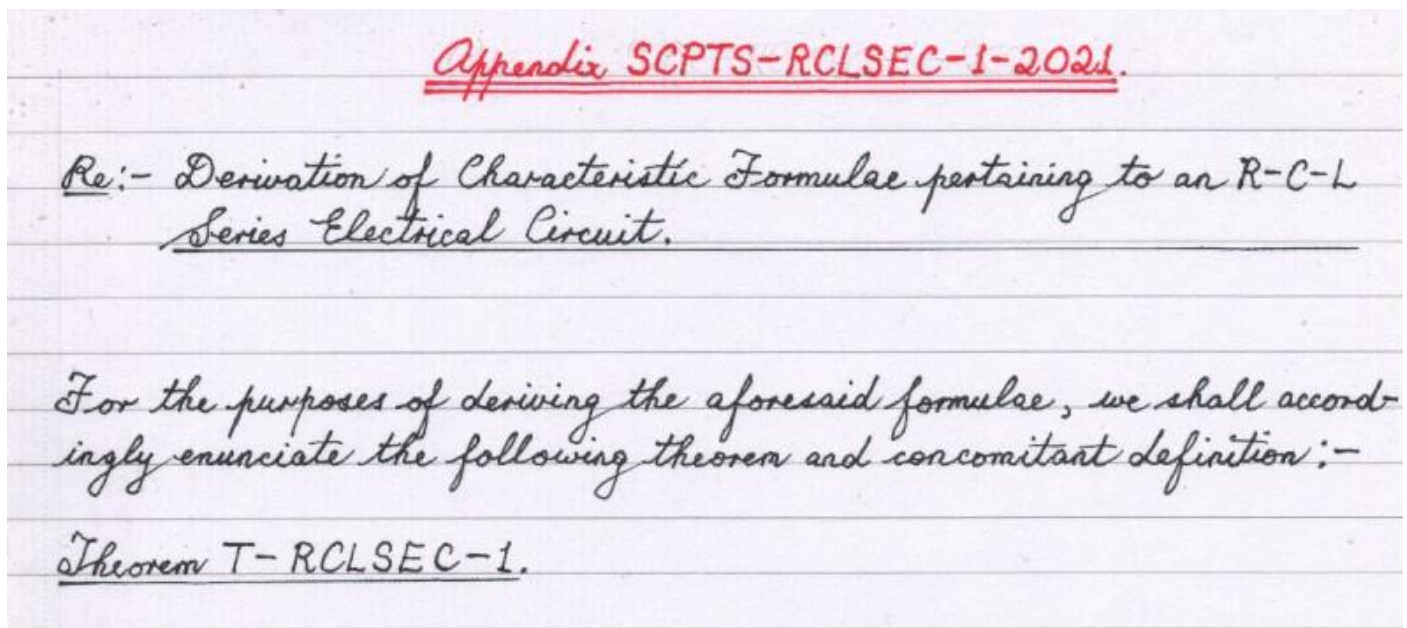 Appendix SCPTS-RCLSEC-1-2021.
Re:- Derivation of Characteristic Formulae pertaining to an R-C-L
Series Electrical Circuit.
For the purposes of deriving the aforesaid formulae, we shall accord-
ingly enunciate the following theorem and concomitant definition:-
Theorem T-RCLSEC-1.